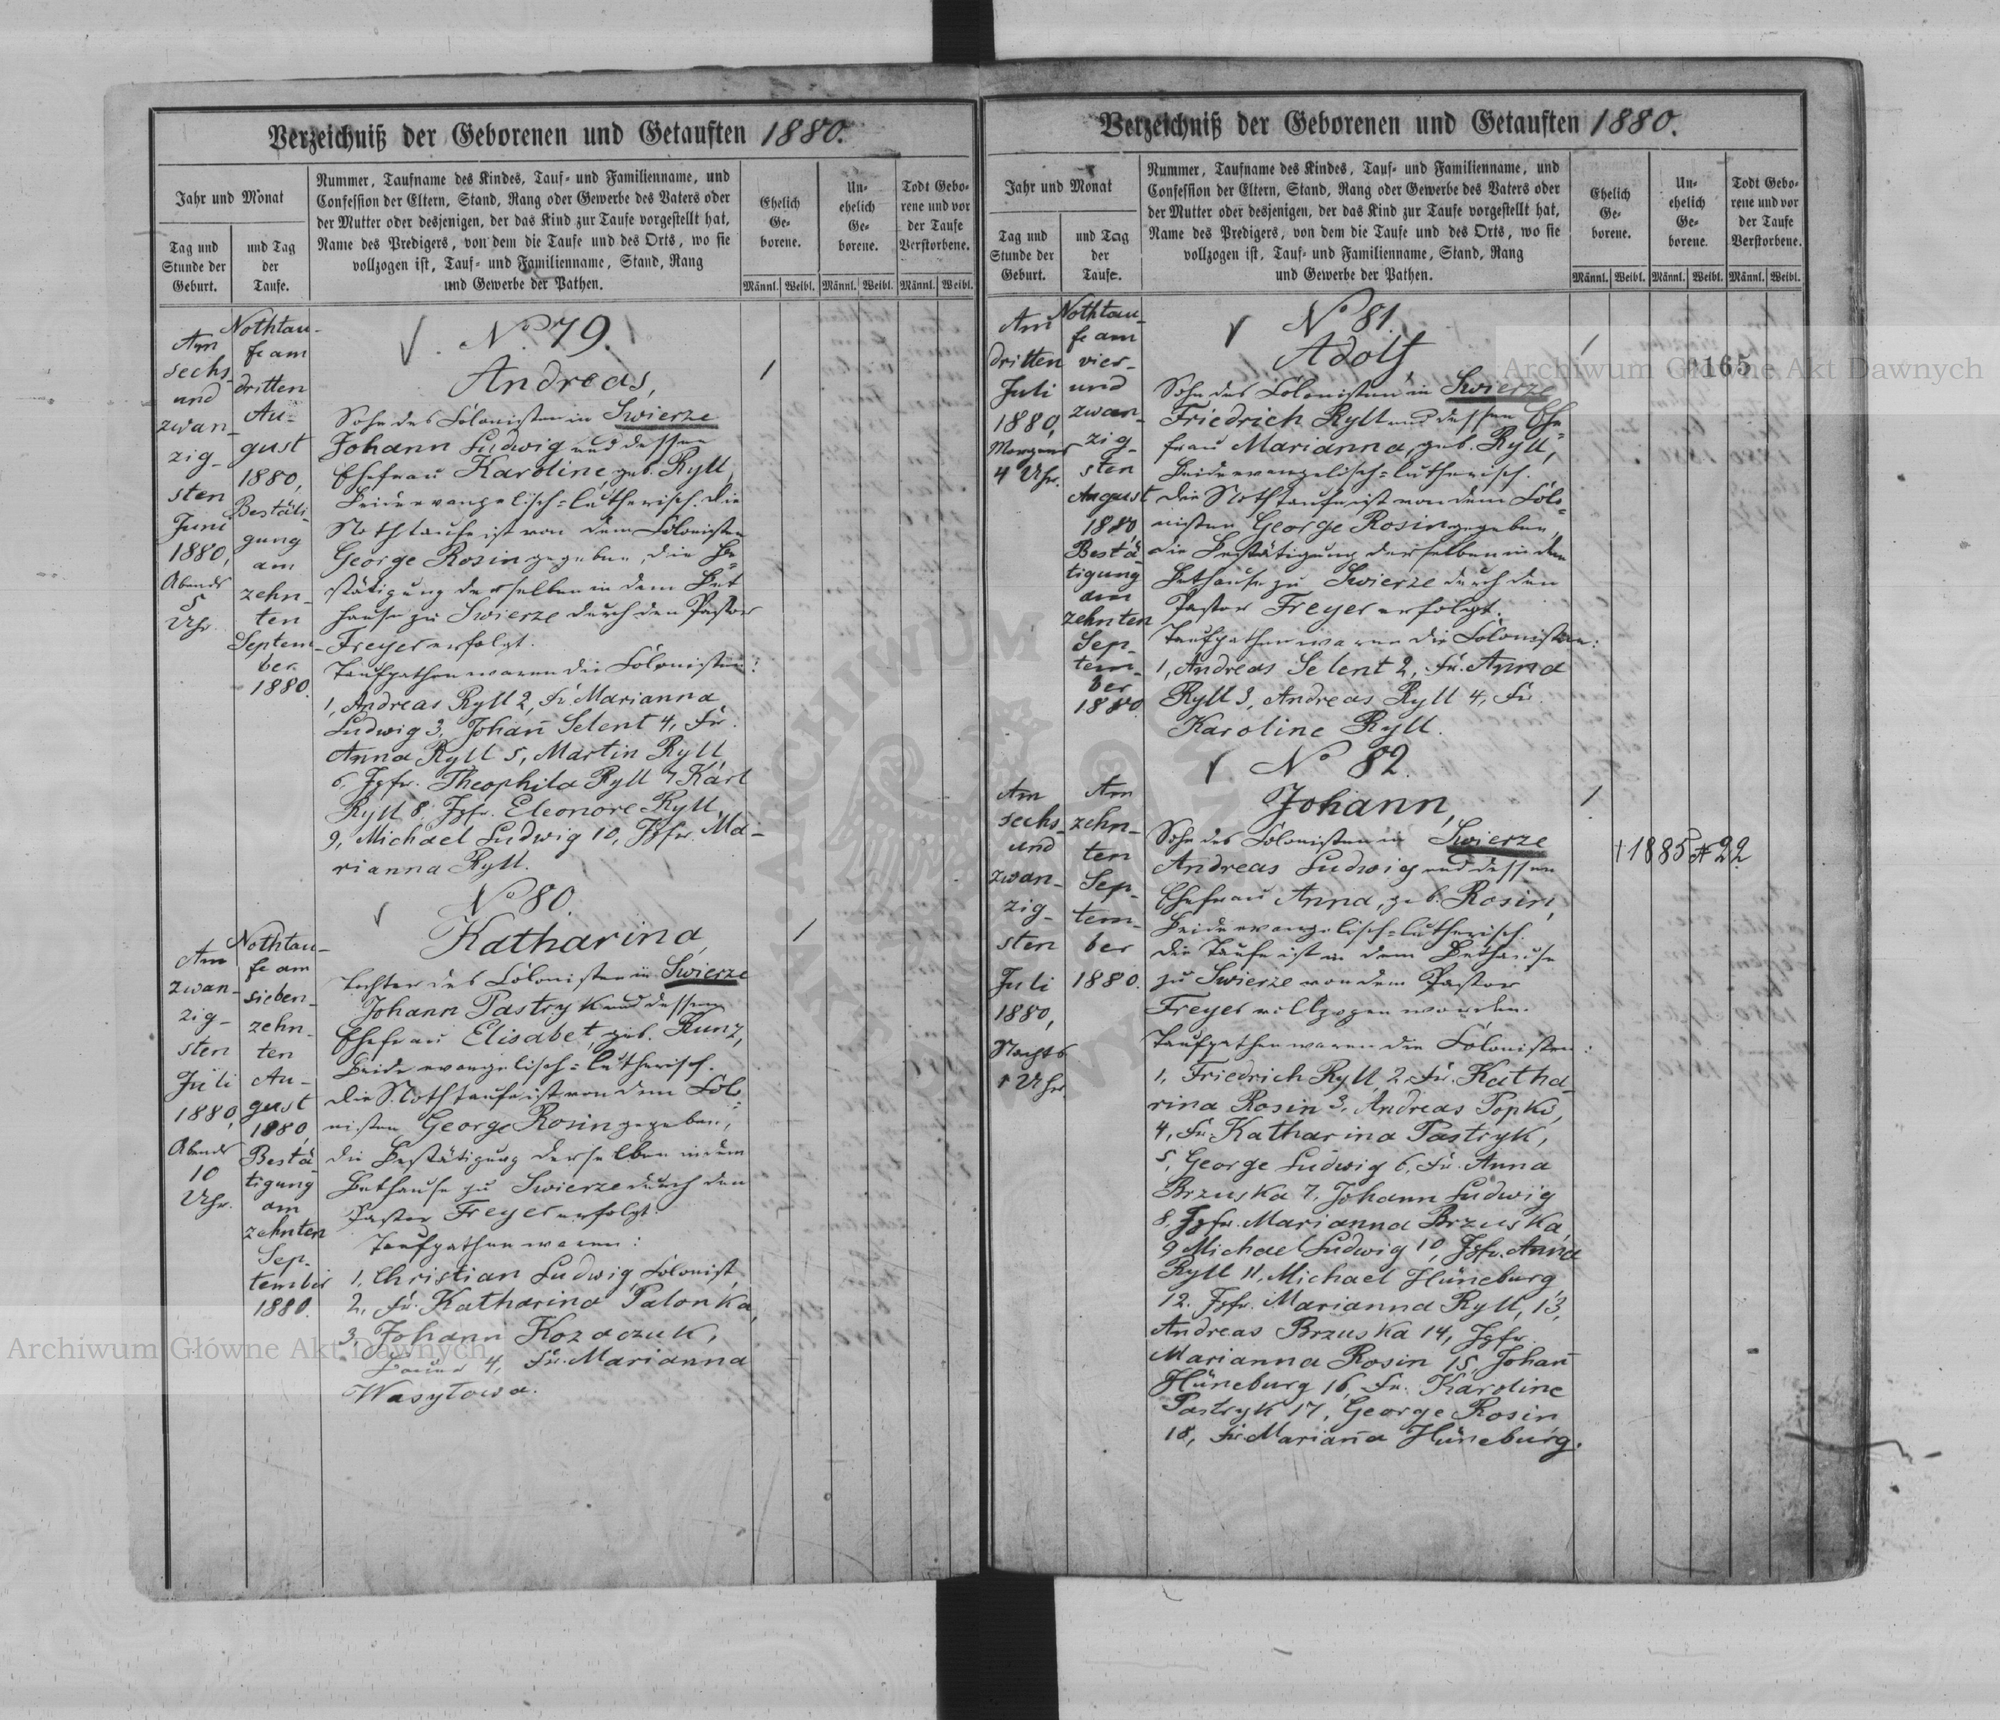 Verzeichniß der Geborenen und Getauften 1880.
Jahr und Monat
Tag und
Stunde der
Geburt.
und Tag
der
Taufe.
Nummer, Taufname des Kindes, Tauf- und Familienname, und
Confession der Eltern, Stand, Rang oder Gewerbe des Vaters oder
der Mutter oder desjenigen, der das Kind zur Taufe vorgestellt hat,
Name des Predigers, von dem die Taufe und des Orts, wo sie
vollzogen ist, Tauf- und Familienname, Stand, Rang
und Gewerbe der Pathen.
Ehelich
Ge-
borene.
Un-
ehelich
Ge-
borene.
Todt Gebo-
rene und vor
der Taufe
Verstorbene.
Männl. Weibl. Männl. Weibl. Männl. Weibl.
Am
sechs-
und
zwan-
zig-
sten
Juni
1880,
Abends
5
Uhr
Nothtau-
fe am
dritten
Au-
gust
1880,
Bestäti-
gung
am
zehn-
ten
Septem-
ber
1880.
No 79.
Andreas,
Sohn des Colonisten in Swierze
Johann Ludwig und dessen
Ehefrau Karoline, geb. Ryll,
Beide evangelisch-lutherisch. Die
Nothtaufe ist von dem Colonisten
George Rosin gegeben, die Be-
stätigung derselben in dem Bet
hause zu Swierze durch den Pastor
Freyer erfolgt.
Taufpathen waren die Colonisten:
1, Andreas Ryll 2, Fr. Marianna
Ludwig 3, Johañ Selent 4, Fr.
Anna Ryll 5, Martin Ryll,
6, Jgfr. Theophila Ryll 7 Karl
Ryll 8, Jgfr. Eleonore Ryll,
9, Michael Ludwig 10, Jgfr. Ma-
rianna Ryll.
1
Am
zwan-
zig-
sten
Juli
1880,
Abends
10
Uhr.
Nothtau-
fe am
sieben-
zehn-
ten
Au-
gust
1880,
Bestä-
tigung
am
zehnten
Sep-
tember
1880.
No 80.
Katharina,
Tochter des Colonisten in Swierze
Johann Pastryk und dessen
Ehefrau Elisabet, geb. Kunz,
Beide evangelisch-lutherisch.
Die Nothtaufe ist von dem Colo-
nisten George Rosin gegeben,
die Bestätigung derselben in dem
Bethause zu Swierze durch den
Pastor Freyer erfolgt.
Taufpathen waren:
1, Christian Ludwig, Colonist,
2, Fr. Katharina Palonka,
3, Johann Kozaczuk,
Bauer 4, Fr. Marianna
Wasylowa.
1
Verzeichniß der Geborenen und Getauften 1880.
Jahr und Monat
Tag und
Stunde der
Geburt.
und Tag
der
Taufe.
Nummer, Taufname des Kindes, Tauf- und Familienname, und
Confession der Eltern, Stand, Rang oder Gewerbe des Vaters oder
der Mutter oder desjenigen, der das Kind zur Taufe vorgestellt hat,
Name des Predigers, von dem die Taufe und des Orts, wo sie
vollzogen ist, Tauf- und Familienname, Stand, Rang
und Gewerbe der Pathen.
Ehelich
Ge-
borene.
Un-
ehelich
Ge-
borene.
Todt Gebo-
rene und vor
der Taufe
Verstorbene.
Männl. Weibl. Männl. Weibl. Männl. Weibl.
165
Am
dritten
Juli
1880,
Morgens
4 Uhr.
Nothtau-
fe am
vier-
und
zwan-
zig-
sten
August
1880
Bestä-
tigung
am
zehnten
Sep-
tem-
ber
1880
No 81.
Adolf,
Sohn des Colonisten in Swierze
Friedrich Ryll und dessen Ehe-
frau Marianna, geb. Ryll,
Beide evangelisch-lutherisch.
Die Nothtaufe ist von dem Colo-
nisten George Rosin gegeben,
die Bestätigung derselben in dem
Bethause zu Swierze durch den
Pastor Freyer erfolgt.
Taufpathen waren die Colonisten:
1, Andreas Selent 2, Fr. Anna
Ryll 3, Andreas Ryll 4, Fr.
Karoline Ryll.
1
Am
sechs-
und
zwan-
zig-
sten
Juli
1880,
Nachts
1 Uhr.
Am
zehn-
ten
Sep-
tem-
ber
1880.
No 82.
Johann,
Sohn des Colonisten in Swierze
Andreas Ludwig und dessen
Ehefrau Anna, geb. Rosin,
Beide evangelisch-lutherisch.
Die Taufe ist in dem Bethause
zu Swierze von dem Pastor
Freyer vollzogen worden.
Taufpathen waren die Colonisten:
1, Friedrich Ryll, 2, Fr. Katha-
rina Rosin 3, Andreas Popko,
4, Fr. Katharina Pastryk,
5, George Ludwig 6, Fr. Anna
Brzuska 7, Johann Ludwig
8, Jgfr. Marianna Brzuska,
9 Michael Ludwig 10, Jgfr. Anna
Ryll 11, Michael Hüneburg,
12. Jgfr. Marianna Ryll, 13,
Andreas Brzuska 14, Jgfr.
Marianna Rosin 15, Johañ
Hüneburg 16, Fr. Karoline
Pastryk 17, George Rosin
18, Fr Mariaña Hüneburg.
1
† 1885 № 22
Archiwum Główne Akt Dawnych
Archiwum Główne Akt Dawnych